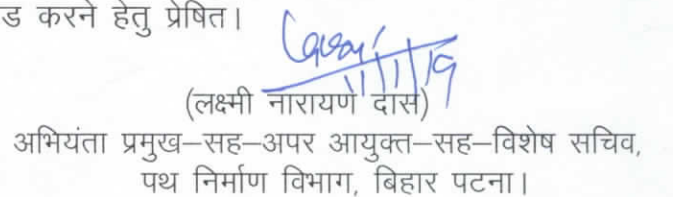 ड करने हेतु प्रेषित।
11/1/19
(लक्ष्मी नारायण दास)
अभियंता प्रमुख–सह–अपर आयुक्त–सह–विशेष सचिव,
पथ निर्माण विभाग, बिहार पटना।